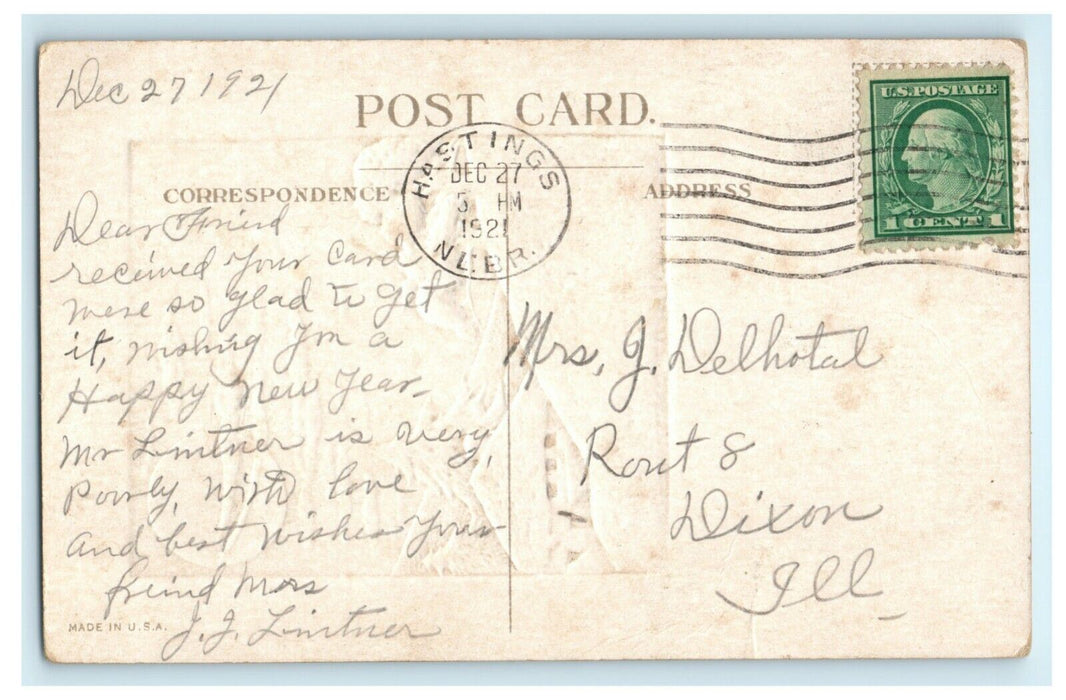 Dec 27 1921
POST CARD.
HASTINGS
DEC 27
5 PM
1921
NEBR.
U.S. POSTAGE
1 CENT 1
CORRESPONDENCE
ADDRESS
Dear Friend
received your Card
were so glad to get
it, wishing you a
Happy New Year
Mr Lintner is very,
Poorly, with love
and best wishes your
freind Mrs
J. J. Lintner
Mrs, J. Delhotal
Rout 8
Dixon
Ill
MADE IN U.S.A.